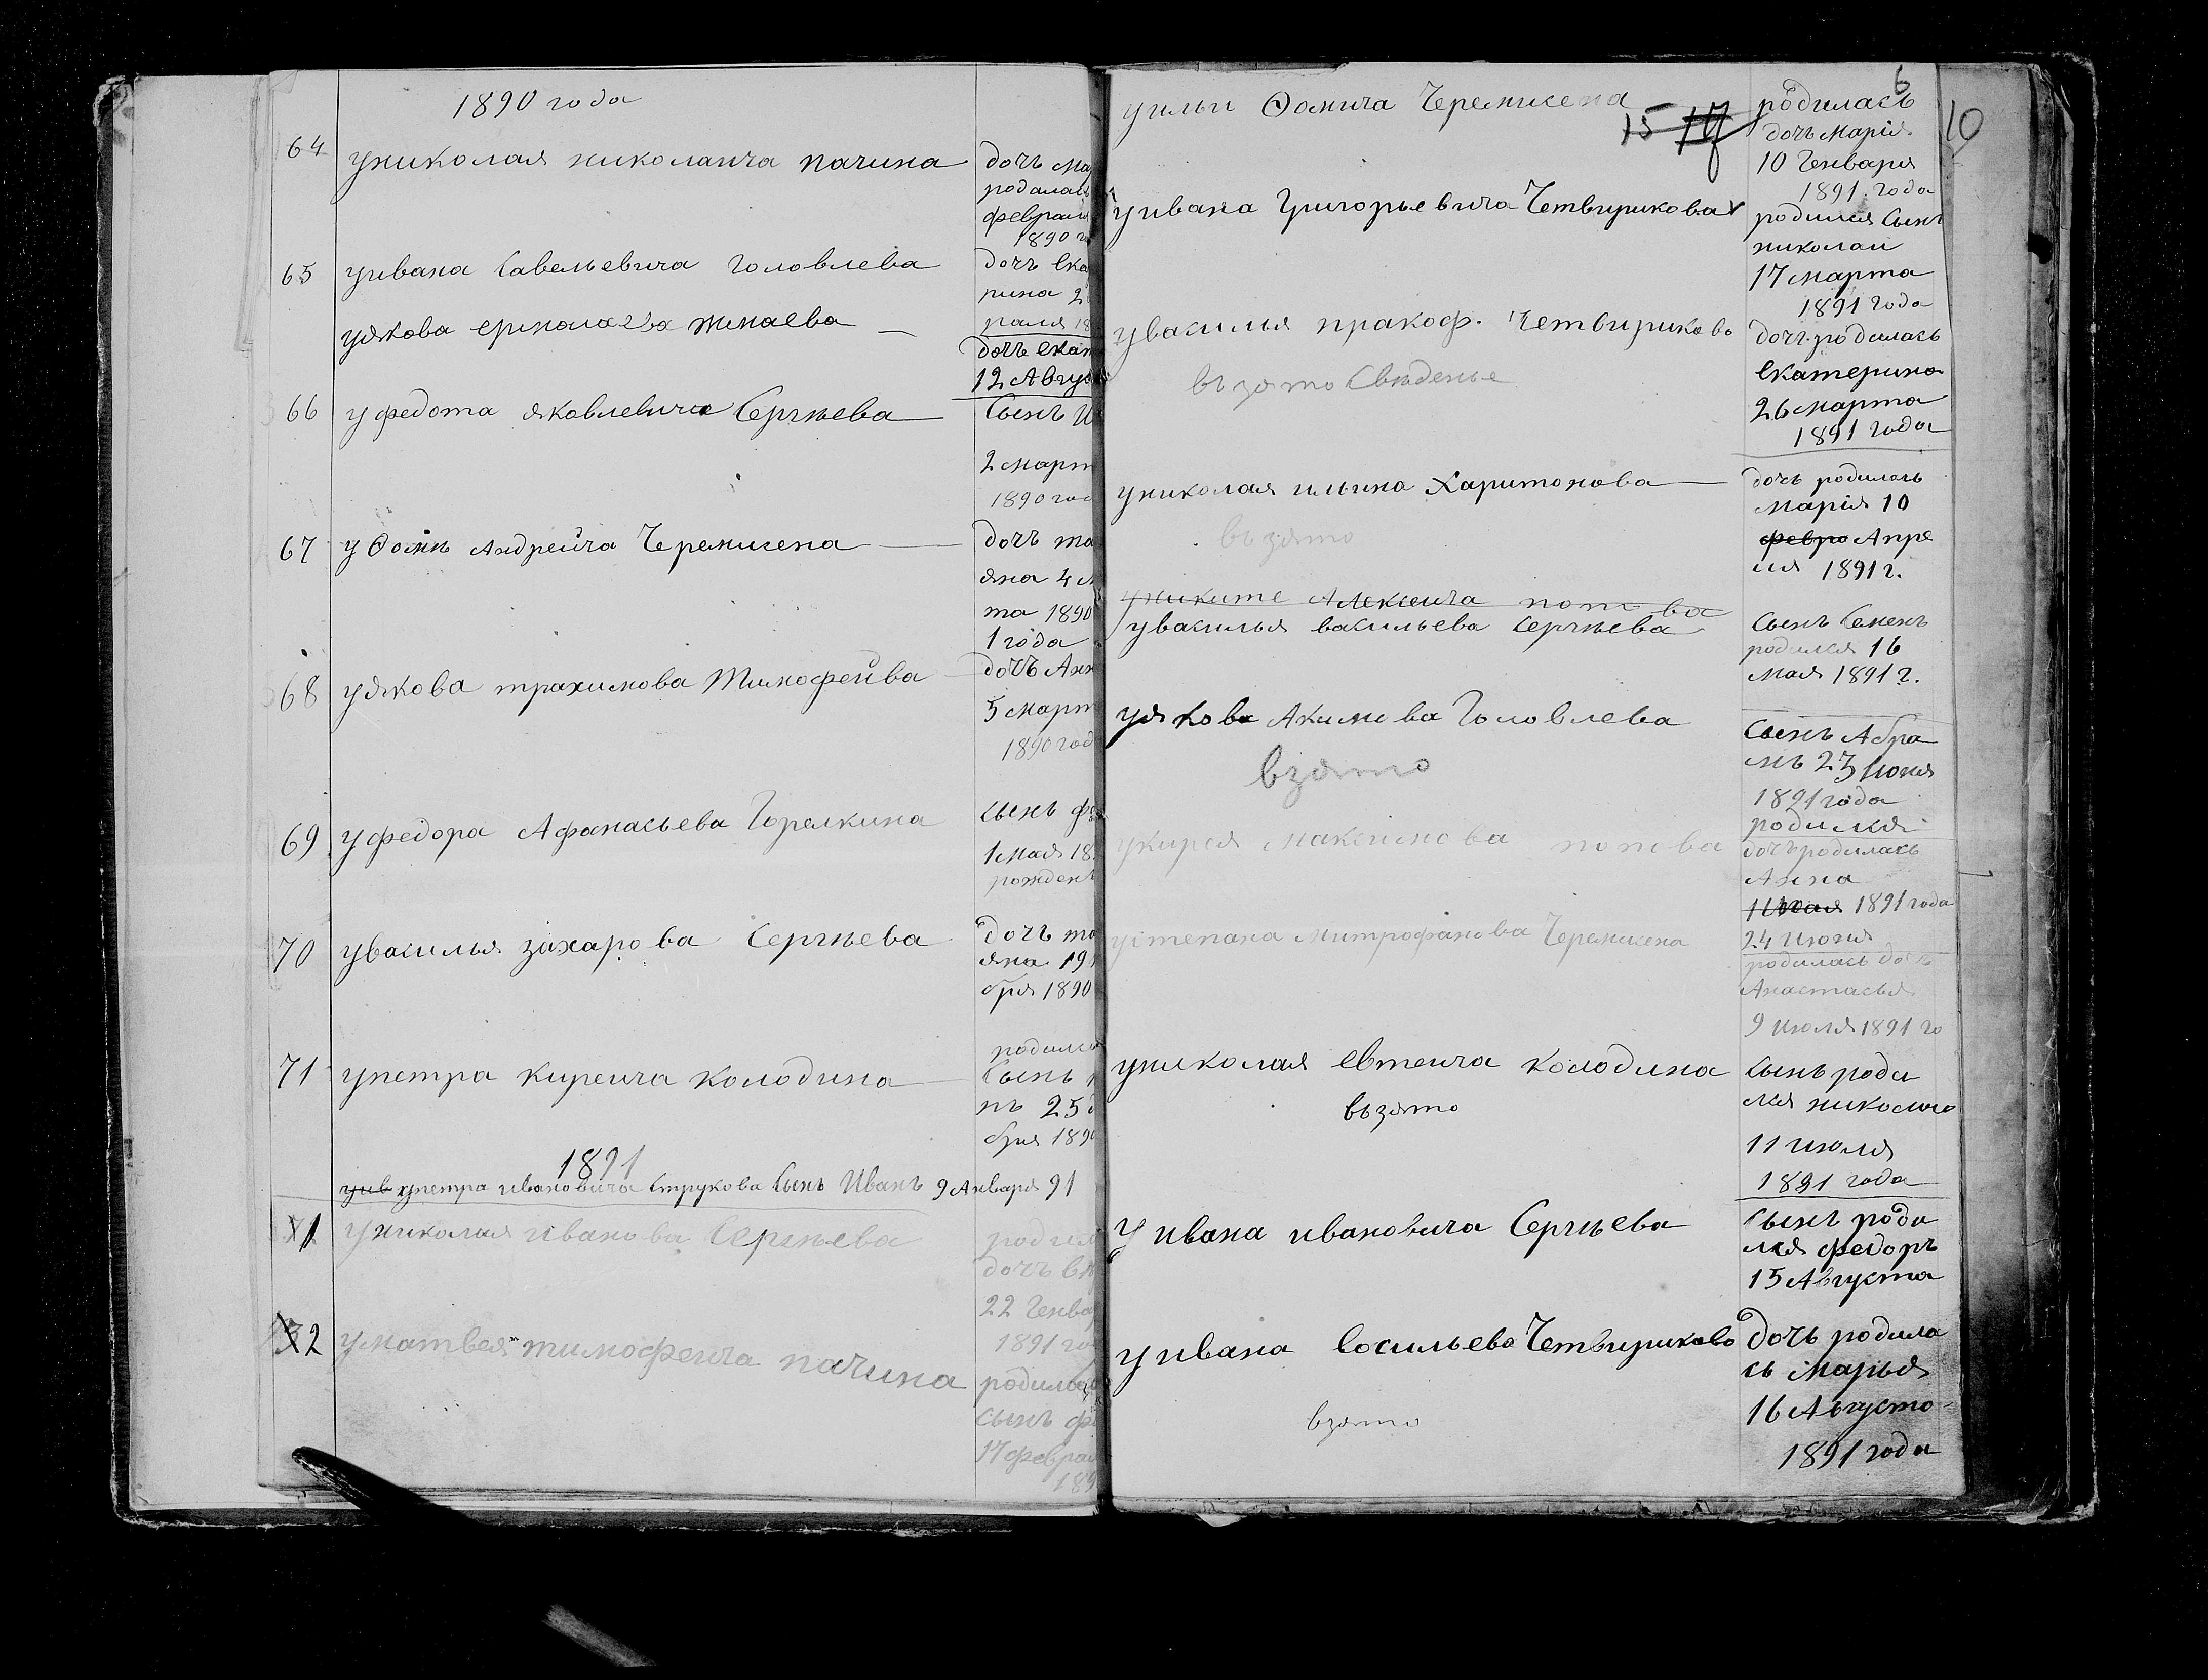 1890 года
64 униколая николаича пачина
дочь ма
родалась
феврал
1890 г
65 уивана Савельевича головлева
дочь Ека
рина 2
раля 18
уякова ермолаева жинаева
дочь екат
12 Авгус
66 у федота яковлевича Сергѣева
Сынъ И
2 март
1890 год
67 у Ѳомы Андрейча Черемисена
дочь та
яна 4 м
та 1890
1 года
68 уякова трахимова Тимофейва
дочъ Анн
5 март
1890 год
69 у федора Афанасьева Горелкина
сынъ фе
1 мая 18
рожден
70 увасилья захарова Сергѣева
дочъ та
яна 19
бря 1890
71 упетра киреича колодина
родился
Сынъ
нъ 25 д
бря 1890
1891
уив упетра ивановича Струкова Сынъ Иванъ 9 Января 91
1 униколая иванова Сергѣева
родил
дочъ ек
22 Генва
1891 го
2 уматвея тимофеича пачина
родился
сынъ фе
17 феврал
189
6
10
15 17
уильи Ѳомича Черемисена
родилась
дочь марія
10 Генваря
1891 года
уивана Григорьевича Четвирикова
родился Сынъ
николаи
17 марта
1891 года
увасилья пракоф. Четвирикова
дочь родилась
взято Свѣденье
Екатерина
26 марта
1891 года
униколая ильина Харитонова
дочь родилась
марія 10
взято
февро Апре
ля 1891 г.
униките Алексеича попова
увасилья васильева Сергѣева
Сынъ Семенъ
родился 16
мая 1891 г.
уякова Акимова Головлева
Сынъ Абра
мъ 23 июня
взято
1891 года
родился
укирея максимова попова
дочъ родилась
Анна
1891 года
24 Июня
устепана митрофанова Черемисена
родилась дочь
Анастасья
9 июля 1891 го
униколая Евтеича колодина
Сынъ роди
лся николаи
взято
11 июля
1891 года
У ивана ивановича Сергѣева
Сынъ роди
лся федоръ
15 Августа
уивана Васильева Четвирикова
дочь родила
сь марья
16 Августа
взято
1891 года